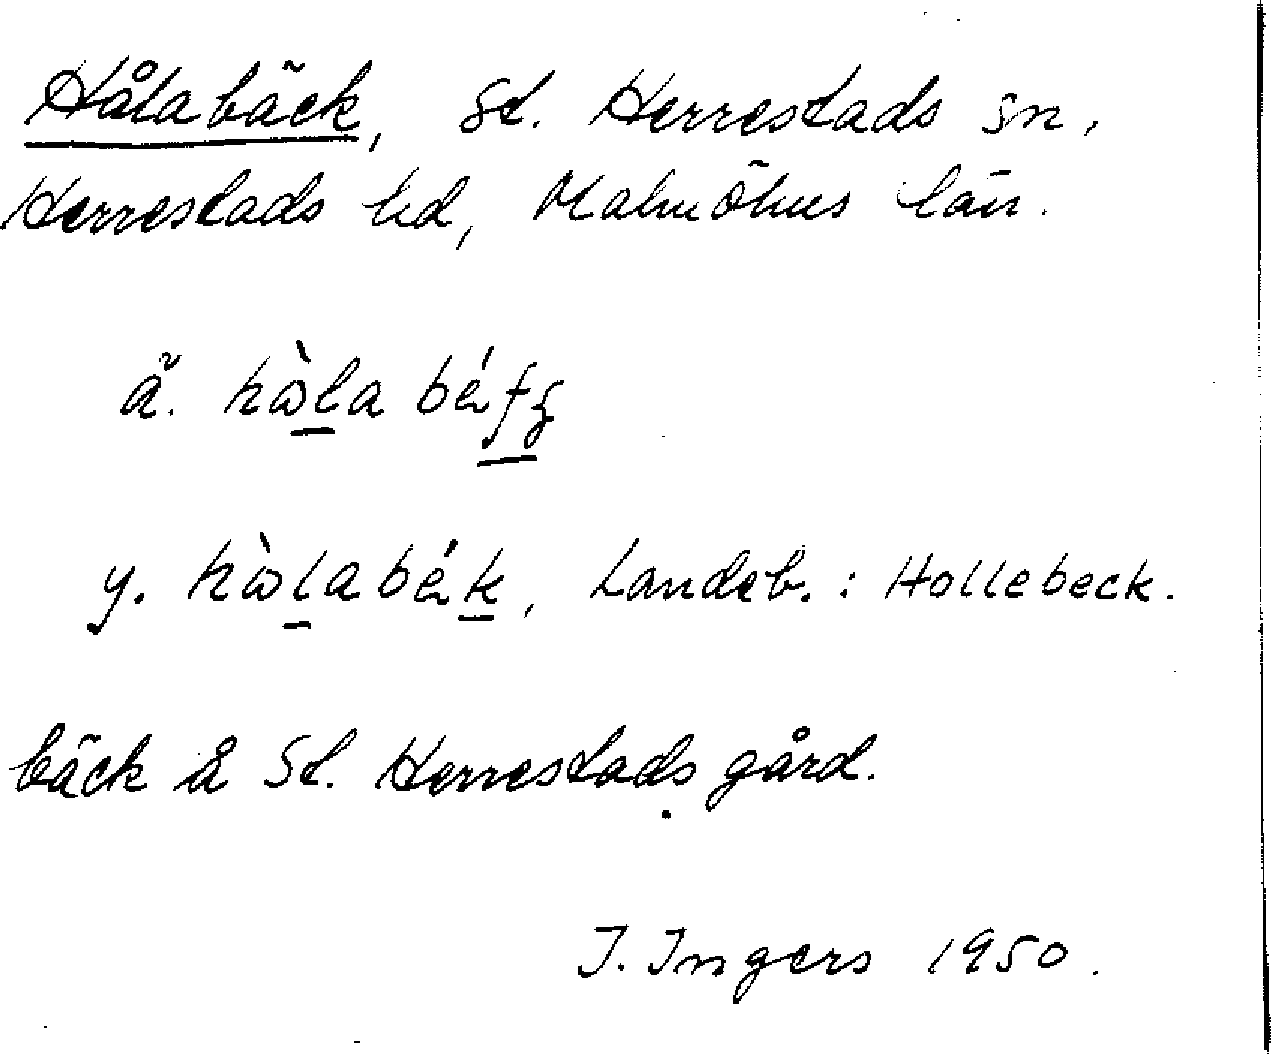 Hålabäck, St. Herrestads sn,
Herrestads hd, Malmöhus län.
ä.
y. Landeb.: Hollebeck.
bäck å St. Herrestads gård.
I. Ingers 1950.